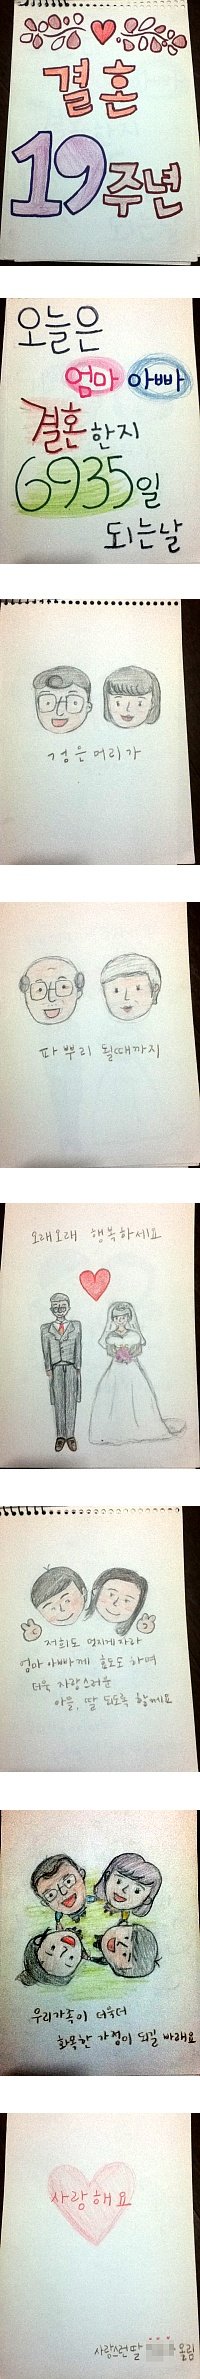 결혼
19주년
오늘은
엄마 아빠
결혼한지
6935일
되는날
검은머리가
파뿌리 될때까지
오래오래 행복하세요
저희도 멋지게 자라
엄마 아빠께 효도도 하며
더욱 자랑스러운
아들, 딸 되도록 할께요
우리가족이 더욱더
화목한 가정이 되길 바래요
사랑해요
사랑스런 딸 올림